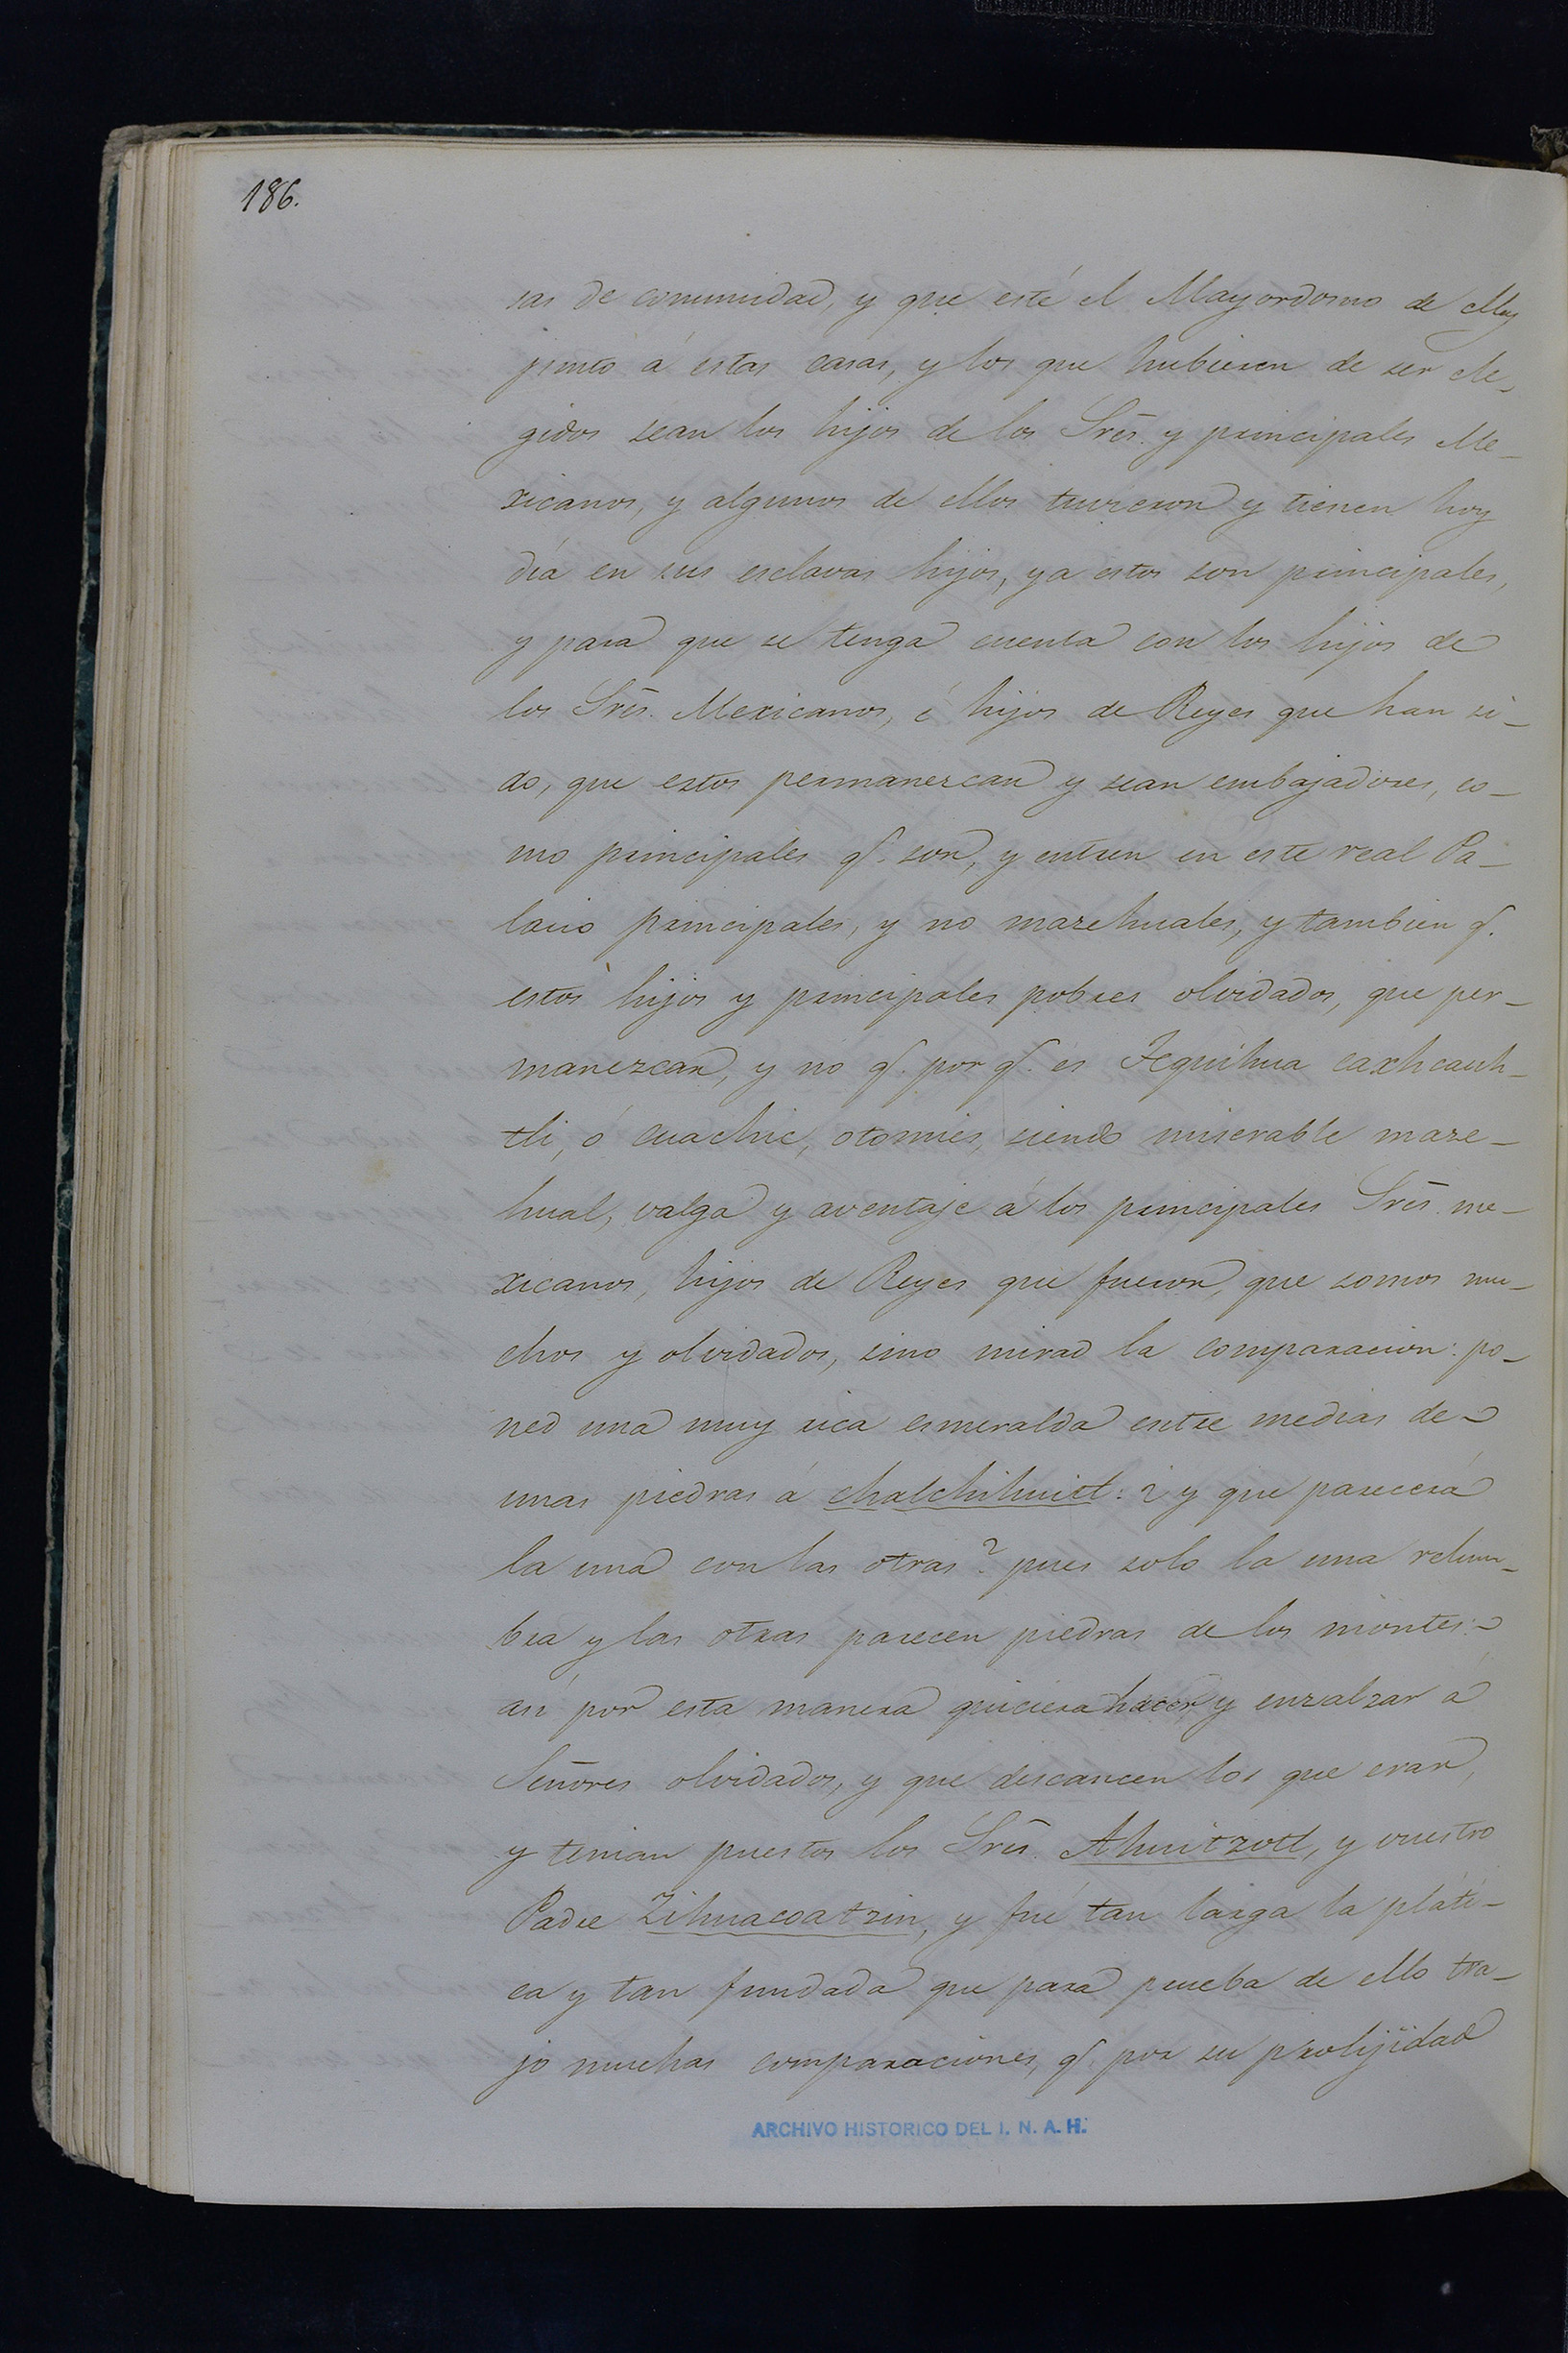 186.
sas de comunidad, y que esté el Mayordomo de ellos
junto á estas casas, y los que hubiesen de ser ele-
gidos sean los hijos de los Srēs. y principales Me-
xicanos, y algunos de ellos tuvieron y tienen hoy
dia en sus esclavas hijos, ya estos son principales,
y para que se tenga cuenta con los hijos de
los Srēs. Mexicanos, é hijos de Reyes que han si-
do, que estos permanezcan y sean embajadores, co-
mo principales q.e son, y entren en este real Pa-
lacio principales, y no mazehuales, y tambien q.e
estos hijos y principales pobres olvidados, que per-
manezcan, y no q.e por q.e es Tequihua caxhcauh-
tli, ó cuachic, otomies, siendo miserable maze-
hual, valga y aventaje á los principales Srēs. me-
xicanos, hijos de Reyes que fueron, que somos mu-
chos y olvidados, sino mirad la comparacion: po-
ned una muy rica esmeralda entre medias de
unas piedras á chalchihuitl: ¿y que parecerá
la una con las otras? pues solo la una relum-
bra y las otras parecen piedras de los montes:
asi por esta manera quiciera hacer y enzalzar á
Señores olvidados, y que descancen los que eran,
y tenian puestos los Srēs. Ahuitzotl, y vuestro
Padre Zihuacoatzin, y fué tan larga la pláti-
ca y tan fundada que para prueba de ello tra-
jo muchas comparaciones, q.e por su prolijidad
ARCHIVO HISTORICO DEL I. N. A. H.